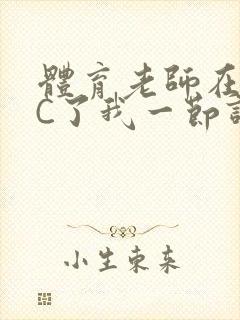 體育老師在
C了我一節
小生東来